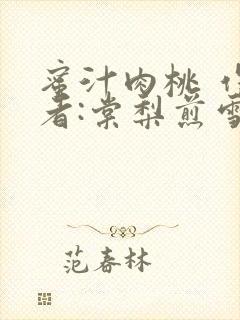 蜜汁肉桃 作
者:棠梨煎雪
范春林